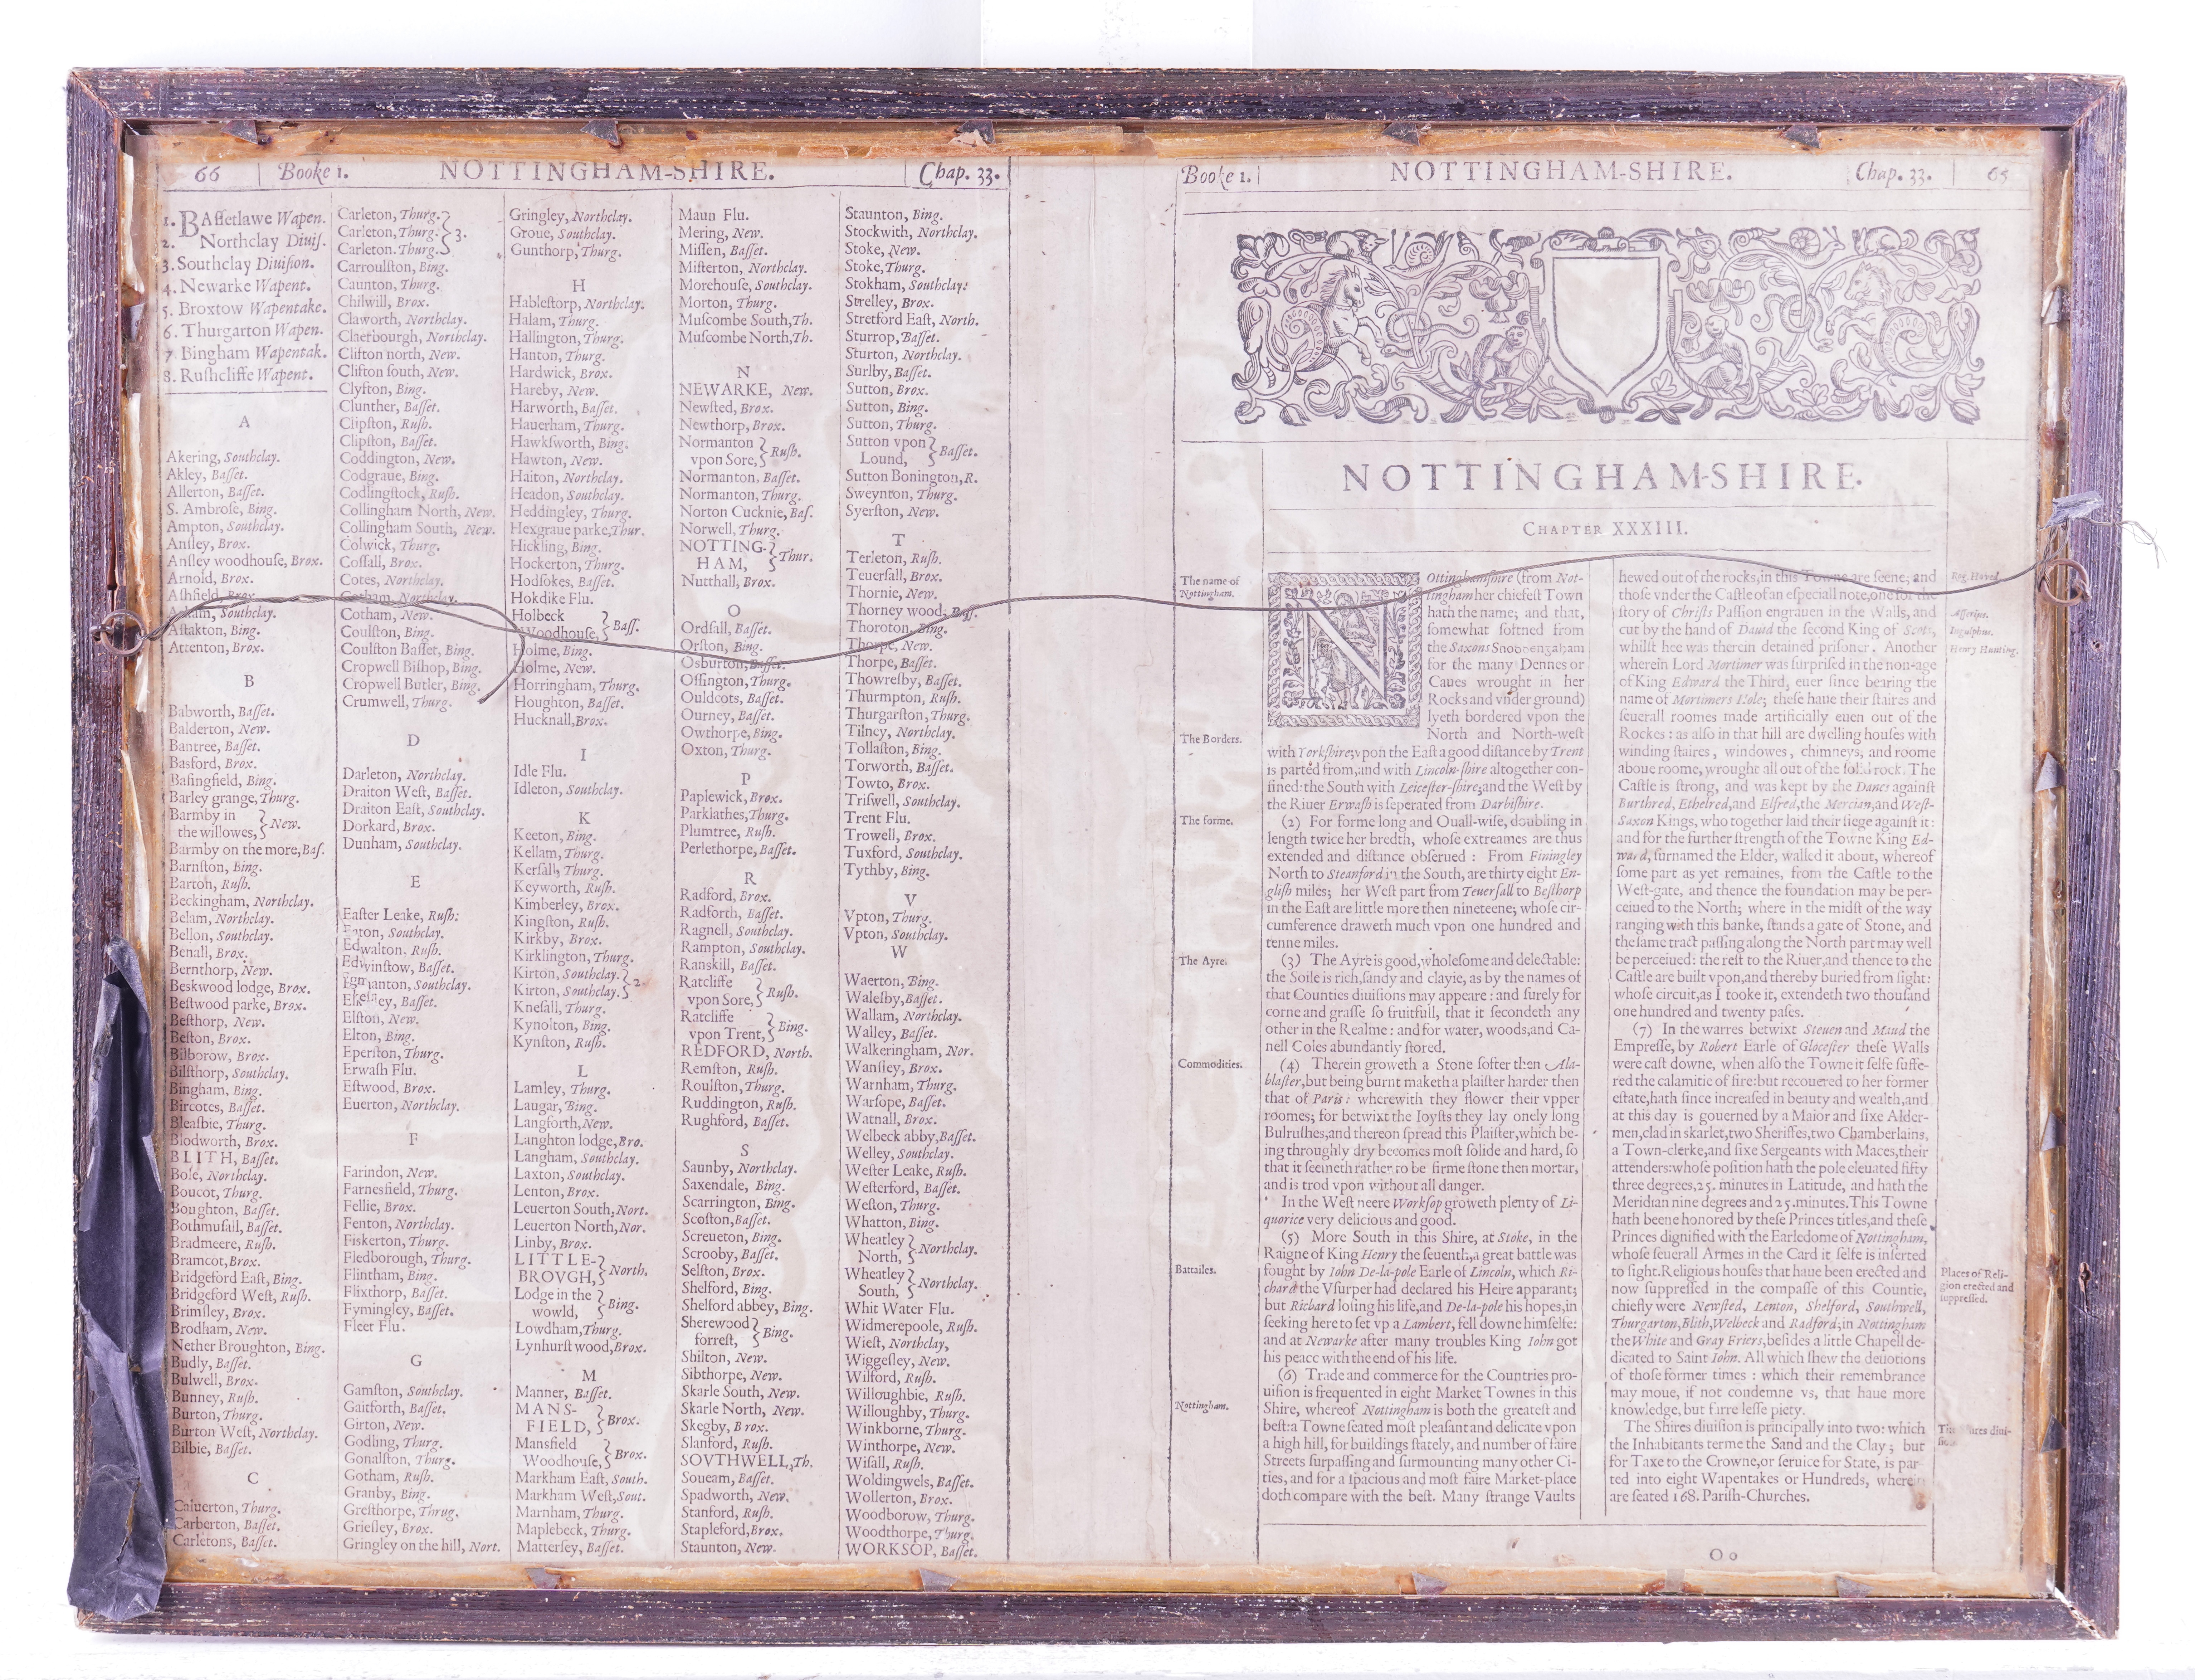 66 Booke 1. NOTTINGHAM-SHIRE. Chap. 33.
1. BAſſetlawe Wapen.
2. Northclay Diuiſ.
3. Southclay Diuiſion.
4. Newarke Wapent.
5. Broxtow Wapentake.
6. Thurgarton Wapen.
7 Bingham Wapentak.
8. Ruſhcliffe Wapent.
A
Akering, Southclay.
Akley, Baſſet.
Allerton, Baſſet.
S. Ambroſe, Bing.
Ampton, Southclay.
Anſley, Brox.
Anſley woodhouſe, Brox.
Arnold, Brox.
Aſhfield, Brox.
Southclay.
Aſtakton, Bing.
Attenton, Brox.
B
Babworth, Baſſet.
Balderton, New.
Bantree, Baſſet.
Basford, Brox.
Baſingfield, Bing.
Barley grange, Thurg.
Barmby in
the willowes, } New.
Barmby on the more, Baſ.
Barnſton, Bing.
Barton, Ruſh.
Beckingham, Northclay.
Belam, Northclay.
Bellon, Southclay.
Benall, Brox.
Bernthorp, New.
Beskwood lodge, Brox.
Beſtwood parke, Brox.
Beſthorp, New.
Beſton, Brox.
Bilborow, Brox.
Bilſthorp, Southclay.
Bingham, Bing.
Bircotes, Baſſet.
Bleaſbie, Thurg.
Blodworth, Brox.
BLITH, Baſſet.
Bole, Northclay.
Boucot, Thurg.
Boughton, Baſſet.
Bothmuſall, Baſſet.
Bradmeere, Ruſh.
Bramcot, Brox.
Bridgeford Eaſt, Bing.
Bridgeford Weſt, Ruſh.
Brimſley, Brox.
Brodham, New.
Nether Broughton, Bing.
Budly, Baſſet.
Bulwell, Brox.
Bunney, Ruſh.
Burton, Thurg.
Burton Weſt, Northclay.
Bilbie, Baſſet.
C
Caluerton, Thurg.
Carberton, Baſſet.
Carletons, Baſſet.
Carleton, Thurg.
Carleton, Thurg. } 3.
Carleton. Thurg.
Carroulſton, Bing.
Caunton, Thurg.
Chilwill, Brox.
Claworth, Northclay.
Claerbourgh, Northclay.
Clifton north, New.
Clifton ſouth, New.
Clyfton, Bing.
Clunther, Baſſet.
Clipſton, Ruſh.
Clipſton, Baſſet.
Coddington, New.
Codgraue, Bing.
Codlingſtock, Ruſh.
Collingham North, New.
Collingham South, New.
Colwick, Thurg.
Coſſall, Brox.
Cotes, Northclay.
Cotham, Northclay.
Cotham, New.
Coulſton, Bing.
Coulſton Baſſet, Bing.
Cropwell Biſhop, Bing.
Cropwell Butler, Bing.
Crumwell, Thurg.
D
Darleton, Northclay.
Draiton Weſt, Baſſet.
Draiton Eaſt, Southclay.
Dorkard, Brox.
Dunham, Southclay.
E
Eaſter Leake, Ruſh:
Eaton, Southclay.
Edwalton, Ruſh.
Edwinſtow, Baſſet.
Egmanton, Southclay.
Baſſet.
Elſton, New.
Elton, Bing.
Eperſton, Thurg.
Erwaſh Flu.
Eſtwood, Brox.
Euerton, Northclay.
F
Farindon, New.
Farnesfield, Thurg.
Fellie, Brox.
Fenton, Northclay.
Fiskerton, Thurg.
Fledborough, Thurg.
Flintham, Bing.
Flixthorp, Baſſet.
Fymingley, Baſſet.
Fleet Flu.
G
Gamſton, Southclay.
Gaitforth, Baſſet.
Girton, New.
Godling, Thurg.
Gonalſton, Thurg.
Gotham, Ruſh.
Granby, Bing.
Greſthorpe, Thrug.
Grieſley, Brox.
Gringley on the hill, Nort.
Gringley, Northclay.
Groue, Southclay.
Gunthorp, Thurg.
H
Hableſtorp, Northclay.
Halam, Thurg.
Hallington, Thurg.
Hanton, Thurg.
Hardwick, Brox.
Hareby, New.
Harworth, Baſſet.
Hauerham, Thurg.
Hawkſworth, Bing.
Hawton, New.
Haiton, Northclay.
Headon, Southclay.
Heddingley, Thurg.
Hexgraue parke, Thur.
Hickling, Bing.
Hockerton, Thurg.
Hodſokes, Baſſet.
Hokdike Flu.
Holbeck
Woodhouſe, } Baſſ.
Holme, Bing.
Holme, New.
Horringham, Thurg.
Houghton, Baſſet.
Hucknall, Brox.
I
Idle Flu.
Idleton, Southclay.
K
Keeton, Bing.
Kellam, Thurg.
Kerſall, Thurg.
Keyworth, Ruſh.
Kimberley, Brox.
Kingſton, Ruſh.
Kirkby, Brox.
Kirklington, Thurg.
Kirton, Southclay.
Kirton, Southclay. } 2.
Kneſall, Thurg.
Kynolton, Bing.
Kynſton, Ruſh.
L
Lamley, Thurg.
Laugar, Bing.
Langforth, New.
Langhton lodge, Bro.
Langham, Southclay.
Laxton, Southclay.
Lenton, Brox.
Leuerton South, Nort.
Leuerton North, Nor.
Linby, Brox.
LITTLE-
BROVGH, } North.
Lodge in the
wowld, } Bing.
Lowdham, Thurg.
Lynhurſt wood, Brox.
M
Manner, Baſſet.
MANS-
FIELD, } Brox.
Mansfield
Woodhouſe, } Brox.
Markham Eaſt, South.
Markham Weſt, Sout.
Marnham, Thurg.
Maplebeck, Thurg.
Matterſey, Baſſet.
Maun Flu.
Mering, New.
Miſſen, Baſſet.
Miſterton, Northclay.
Morehouſe, Southclay.
Morton, Thurg.
Muſcombe South, Th.
Muſcombe North, Th.
N
NEWARKE, New.
Newſted, Brox.
Newthorp, Brox.
Normanton
vpon Sore, } Ruſh.
Normanton, Baſſet.
Normanton, Thurg.
Norton Cucknie, Baſ.
Norwell, Thurg.
NOTTING-
HAM, } Thur.
Nutthall, Brox.
O
Ordſall, Baſſet.
Orſton, Bing.
Osburton, Baſſet.
Oſſington, Thurg.
Ouldcots, Baſſet.
Ourney, Baſſet.
Owthorpe, Bing.
Oxton, Thurg.
P
Paplewick, Brox.
Parklathes, Thurg.
Plumtree, Ruſh.
Perlethorpe, Baſſet.
R
Radford, Brox.
Radforth, Baſſet.
Ragnell, Southclay.
Rampton, Southclay.
Ranskill, Baſſet.
Ratcliffe
vpon Sore, } Ruſh.
Ratcliffe
vpon Trent, } Bing.
REDFORD, North.
Remſton, Ruſh.
Roulſton, Thurg.
Ruddington, Ruſh.
Rughford, Baſſet.
S
Saunby, Northclay.
Saxendale, Bing.
Scarrington, Bing.
Scofton, Baſſet.
Screueton, Bing.
Scrooby, Baſſet.
Selſton, Brox.
Shelford, Bing.
Shelford abbey, Bing.
Sherewood
forreſt, } Bing.
Shilton, New.
Sibthorpe, New.
Skarle South, New.
Skarle North, New.
Skegby, Brox.
Slanford, Ruſh.
SOVTHWELL, Th.
Soueam, Baſſet.
Spadworth, New.
Stanford, Ruſh.
Stapleford, Brox.
Staunton, New.
Staunton, Bing.
Stockwith, Northclay.
Stoke, New.
Stoke, Thurg.
Stokham, Southclay:
Strelley, Brox.
Stretford Eaſt, North.
Sturrop, Baſſet.
Sturton, Northclay.
Surlby, Baſſet.
Sutton, Brox.
Sutton, Bing.
Sutton, Thurg.
Sutton vpon
Lound, } Baſſet.
Sutton Bonington, R.
Sweynton, Thurg.
Syerſton, New.
T
Terleton, Ruſh.
Teuerſall, Brox.
Thornie, New.
Thorney wood, Baſſ.
Thoroton, Bing.
Thorpe, New.
Thorpe, Baſſet.
Thowreſby, Baſſet.
Thurmpton, Ruſh.
Thurgarſton, Thurg.
Tilney, Northclay.
Tollaſton, Bing.
Torworth, Baſſet.
Towto, Brox.
Triſwell, Southclay.
Trent Flu.
Trowell, Brox.
Tuxford, Southclay.
Tythby, Bing.
V
Vpton, Thurg.
Vpton, Southclay.
W
Waerton, Bing.
Waleſby, Baſſet.
Wallam, Northclay.
Walley, Baſſet.
Walkeringham, Nor.
Wanſley, Brox.
Warnham, Thurg.
Warſope, Baſſet.
Watnall, Brox.
Welbeck abby, Baſſet.
Welley, Southclay.
Weſter Leake, Ruſh.
Weſterford, Baſſet.
Weſton, Thurg.
Whatton, Bing.
Wheatley
North, } Northclay.
Wheatley
South, } Northclay.
Whit Water Flu.
Widmerepoole, Ruſh.
Wieſt, Northclay,
Wiggeſley, New.
Wilford, Ruſh.
Willoughbie, Ruſh.
Willoughby, Thurg.
Winkborne, Thurg.
Winthorpe, New.
Wiſall, Ruſh.
Woldingwels, Baſſet.
Wollerton, Brox.
Woodborow, Thurg.
Woodthorpe, Thurg.
WORKSOP, Baſſet.
Booke 1. NOTTINGHAM-SHIRE. Chap. 33. 65
NOTTINGHAM-SHIRE.
CHAPTER XXXIII.
The name of
Nottingham.
NOttinghamſhire (from Not-
tingham her chiefeſt Town
hath the name; and that,
somewhat ſoftned from
the Saxons Snoddengaham
for the many Dennes or
Caues wrought in her
Rocks and vnder ground)
lyeth bordered vpon the
North and North-weſt
The Borders.
with Yorkſhire; vpon the Eaſt a good diſtance by Trent
is parted from, and with Lincoln-ſhire altogether con-
fined: the South with Leiceſter-ſhire; and the Weſt by
the Riuer Erwaſh is ſeperated from Darbiſhire.
The forme.
(2) For forme long and Ouall-wiſe, doubling in
length twice her bredth, whoſe extreames are thus
extended and diſtance obſerued: From Finingley
North to Steanford in the South, are thirty eight En-
gliſh miles; her Weſt part from Teuerſall to Beſthorp
in the Eaſt are little more then nineteene; whoſe cir-
cumference draweth much vpon one hundred and
tenne miles.
The Ayre.
(3) The Ayre is good, wholeſome and delectable:
the Soile is rich, ſandy and clayie, as by the names of
that Counties diuiſions may appeare: and ſurely for
corne and graſſe ſo fruitfull, that it ſecondeth any
other in the Realme: and for water, woods, and Ca-
nell Coles abundantly ſtored.
Commodities.
(4) Therein groweth a Stone ſofter then Ala-
blaſter, but being burnt maketh a plaiſter harder then
that of Paris: wherewith they flower their vpper
roomes; for betwixt the Joyſts they lay onely long
Bulruſhes, and thereon ſpread this Plaiſter, which be-
ing throughly dry becomes moſt ſolide and hard, ſo
that it ſeemeth rather to be firme ſtone then mortar,
and is trod vpon without all danger.
In the Weſt neere Workſop groweth plenty of Li-
quorice very delicious and good.
Battailes.
(5) More South in this Shire, at Stoke, in the
Raigne of King Henry the ſeuenth, a great battle was
fought by Iohn De-la-pole Earle of Lincoln, which Ri-
chard the Vſurper had declared his Heire apparant;
but Richard loſing his life, and De-la-pole his hopes, in
ſeeking here to ſet vp a Lambert, fell downe himſelfe:
and at Newarke after many troubles King Iohn got
his peace with the end of his life.
Nottingham.
(6) Trade and commerce for the Countries pro-
uiſion is frequented in eight Market Townes in this
Shire, whereof Nottingham is both the greateſt and
beſt: a Towne ſeated moſt pleaſant and delicate vpon
a high hill, for buildings ſtately, and number of faire
Streets ſurpaſſing and ſurmounting many other Ci-
ties, and for a ſpacious and moſt faire Market-place
doth compare with the beſt. Many ſtrange Vaults
hewed out of the rocks, in this Towne are ſeene; and
thoſe vnder the Caſtle of an eſpeciall note, one for the
ſtory of Chriſts Paſſion engrauen in the Walls, and
cut by the hand of Dauid the ſecond King of Scots,
whilſt hee was therein detained priſoner. Another
wherein Lord Mortimer was ſurpriſed in the non-age
of King Edward the Third, euer ſince bearing the
name of Mortimers Hole; theſe haue their ſtaires and
ſeuerall roomes made artificially euen out of the
Rockes: as alſo in that hill are dwelling houſes with
winding ſtaires, windowes, chimneys, and roome
aboue roome, wrought all out of the ſolid rock. The
Caſtle is ſtrong, and was kept by the Danes againſt
Burthred, Ethelred, and Elfred, the Mercian, and Weſt-
Saxon Kings, who together laid their ſiege againſt it:
and for the further ſtrength of the Towne King Ed-
ward, ſurnamed the Elder, walled it about, whereof
ſome part as yet remaines, from the Caſtle to the
Weſt-gate, and thence the foundation may be per-
ceiued to the North; where in the midſt of the way
ranging with this banke, ſtands a gate of Stone, and
the ſame tract paſſing along the North part may well
be perceiued: the reſt to the Riuer, and thence to the
Caſtle are built vpon, and thereby buried from ſight:
whoſe circuit, as I tooke it, extendeth two thouſand
one hundred and twenty paſes.
(7) In the warres betwixt Steuen and Maud the
Empreſſe, by Robert Earle of Gloceſter theſe Walls
were caſt downe, when alſo the Towne it ſelfe ſuffe-
red the calamitie of fire: but recouered to her former
eſtate, hath ſince increaſed in beauty and wealth, and
at this day is gouerned by a Maior and ſixe Alder-
men, clad in skarlet, two Sheriffes, two Chamberlains,
a Town-clerke, and ſixe Sergeants with Maces, their
attenders: whoſe poſition hath the pole eleuated fifty
three degrees, 25. minutes in Latitude, and hath the
Meridian nine degrees and 25. minutes. This Towne
hath beene honored by theſe Princes titles, and theſe
Princes dignified with the Earledome of Nottingham,
whoſe ſeuerall Armes in the Card it ſelfe is inſerted
to ſight. Religious houſes that haue been erected and
now ſuppreſſed in the compaſſe of this Countie,
chiefly were Newſted, Lenton, Shelford, Southwell,
Thurgarton, Blith, Welbeck and Radford; in Nottingham
the White and Gray Friers, beſides a little Chapell de-
dicated to Saint Iohn. All which ſhew the deuotions
of thoſe former times: which their remembrance
may moue, if not condemne vs, that haue more
knowledge, but farre leſſe piety.
The Shires diuiſion is principally into two: which
the Inhabitants terme the Sand and the Clay; but
for Taxe to the Crowne, or ſeruice for State, is par-
ted into eight Wapentakes or Hundreds, where
are ſeated 168. Pariſh-Churches.
Aſſerius.
Ingulphus.
Henry Hunting.
Places of Reli-
gion erected and
ſuppreſſed.
The Shires diui-
O o